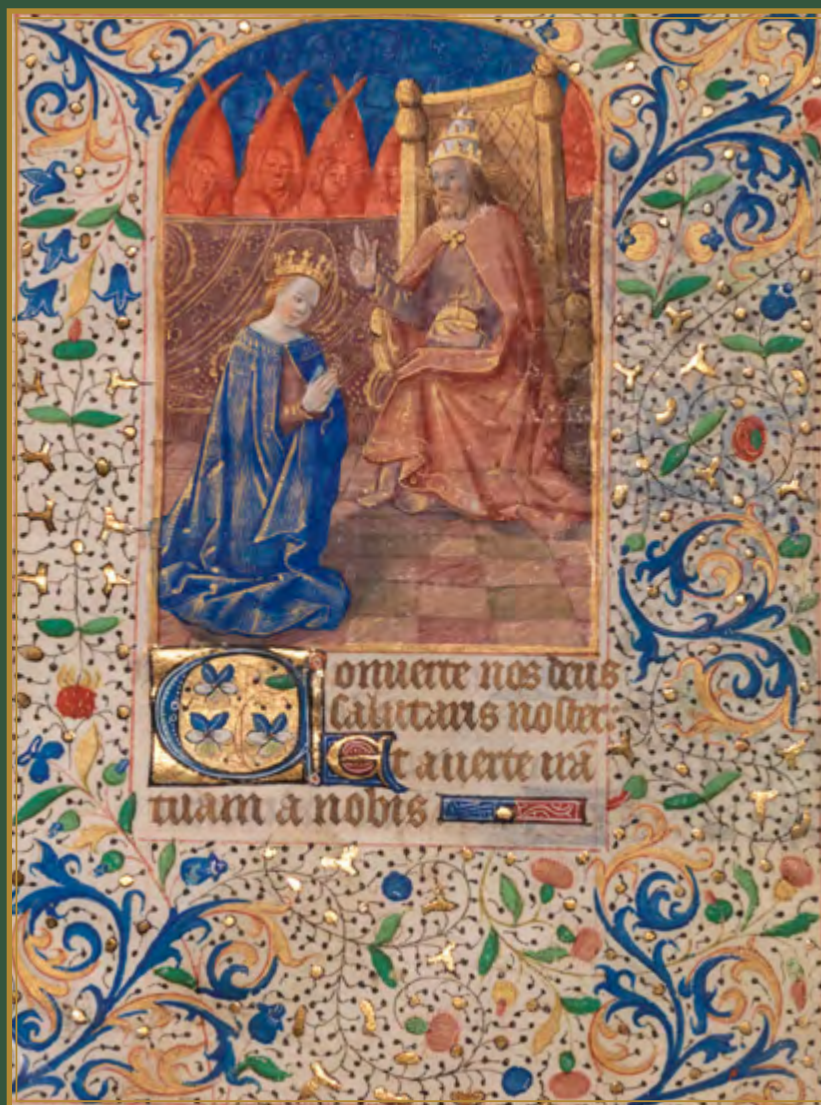 Conuerte nos deus
salutaris noster.
Et auerte irã
tuam a nobis